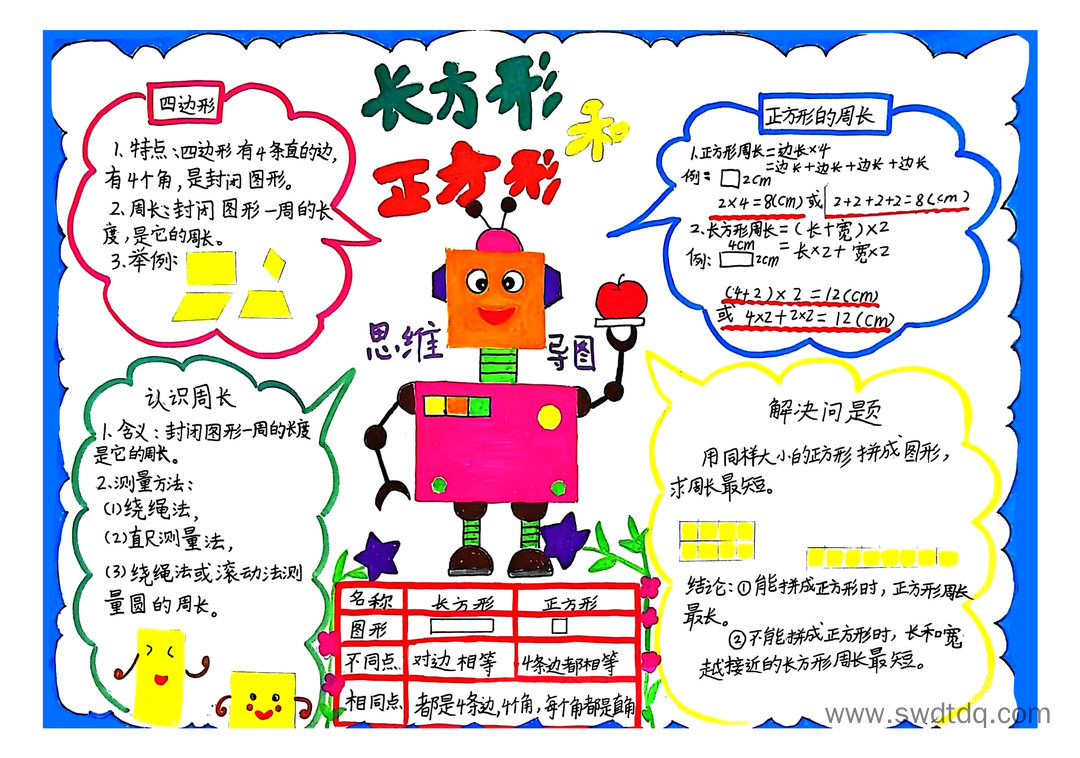 长方形
和
正方形
思维
导图
四边形
1、特点:四边形有4条直的边,
有4个角,是封闭图形。
2、周长:封闭图形一周的长
度,是它的周长。
3、举例:
正方形的周长
1.正方形周长=边长×4
=边长+边长+边长+边长
例: 2cm
2×4=8(cm) 或 2+2+2+2=8(cm)
2、长方形周长=(长+宽)×2
=长×2+宽×2
例: 4cm 2cm
(4+2)×2=12(cm)
或 4×2+2×2=12(cm)
认识周长
1、含义:封闭图形一周的长度
是它的周长。
2、测量方法:
(1)绕绳法,
(2)直尺测量法,
(3)绕绳法或滚动法测
量圆的周长。
解决问题
用同样大小的正方形拼成图形,
求周长最短。
结论:①能拼成正方形时,正方形周长
最长。
②不能拼成正方形时,长和宽
越接近的长方形周长最短。
名称 长方形 正方形
图形
不同点 对边相等 4条边都相等
相同点 都是4条边,4个角,每个角都是直角
www.swdtdq.com